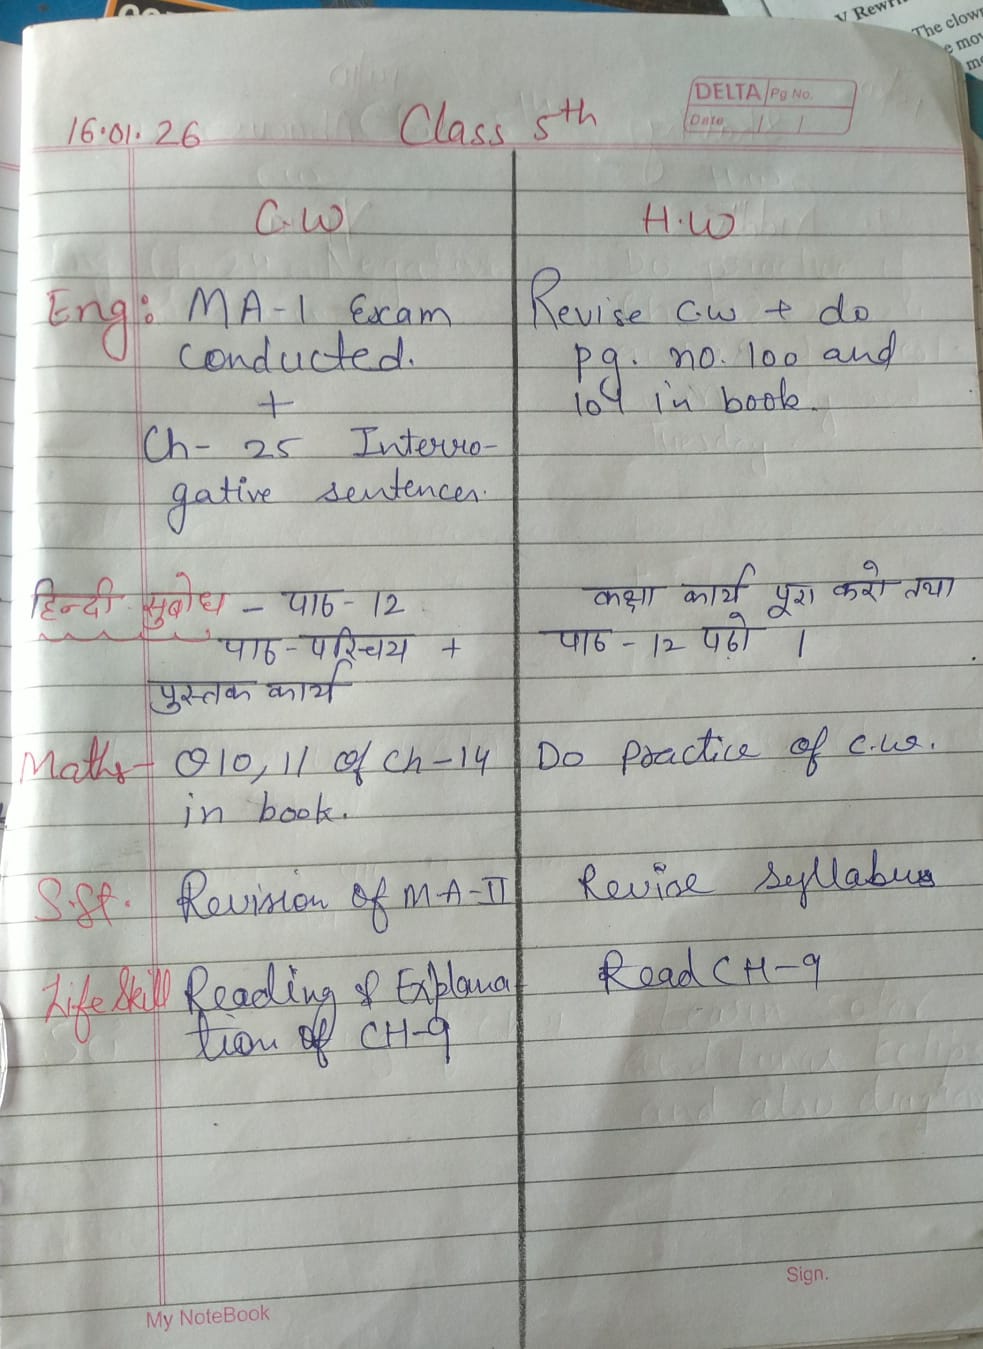 V Rewri
The clow
e mo
me
DELTA Pg No.
Date / /
16.01.26 Class 5th
C.W
Eng: MA-1 Exam
conducted.
+
Ch- 25 Interro-
gative sentences.
हिन्दी सुबोध - पाठ-12
पाठ-परिचय +
पुस्तक कार्य
Maths- Q10, 11 of Ch-14
in book.
S.St. Revision of MA-II
Life Skill Reading & Explana
tion of CH-9
H.W
Revise c.w + do
pg. no. 100 and
104 in book.
कक्षा कार्य पूरा करो तथा
पाठ - 12 पढ़ो ।
Do Practice of c.w.
Revise syllabus
Read CH-9
Sign.
My NoteBook